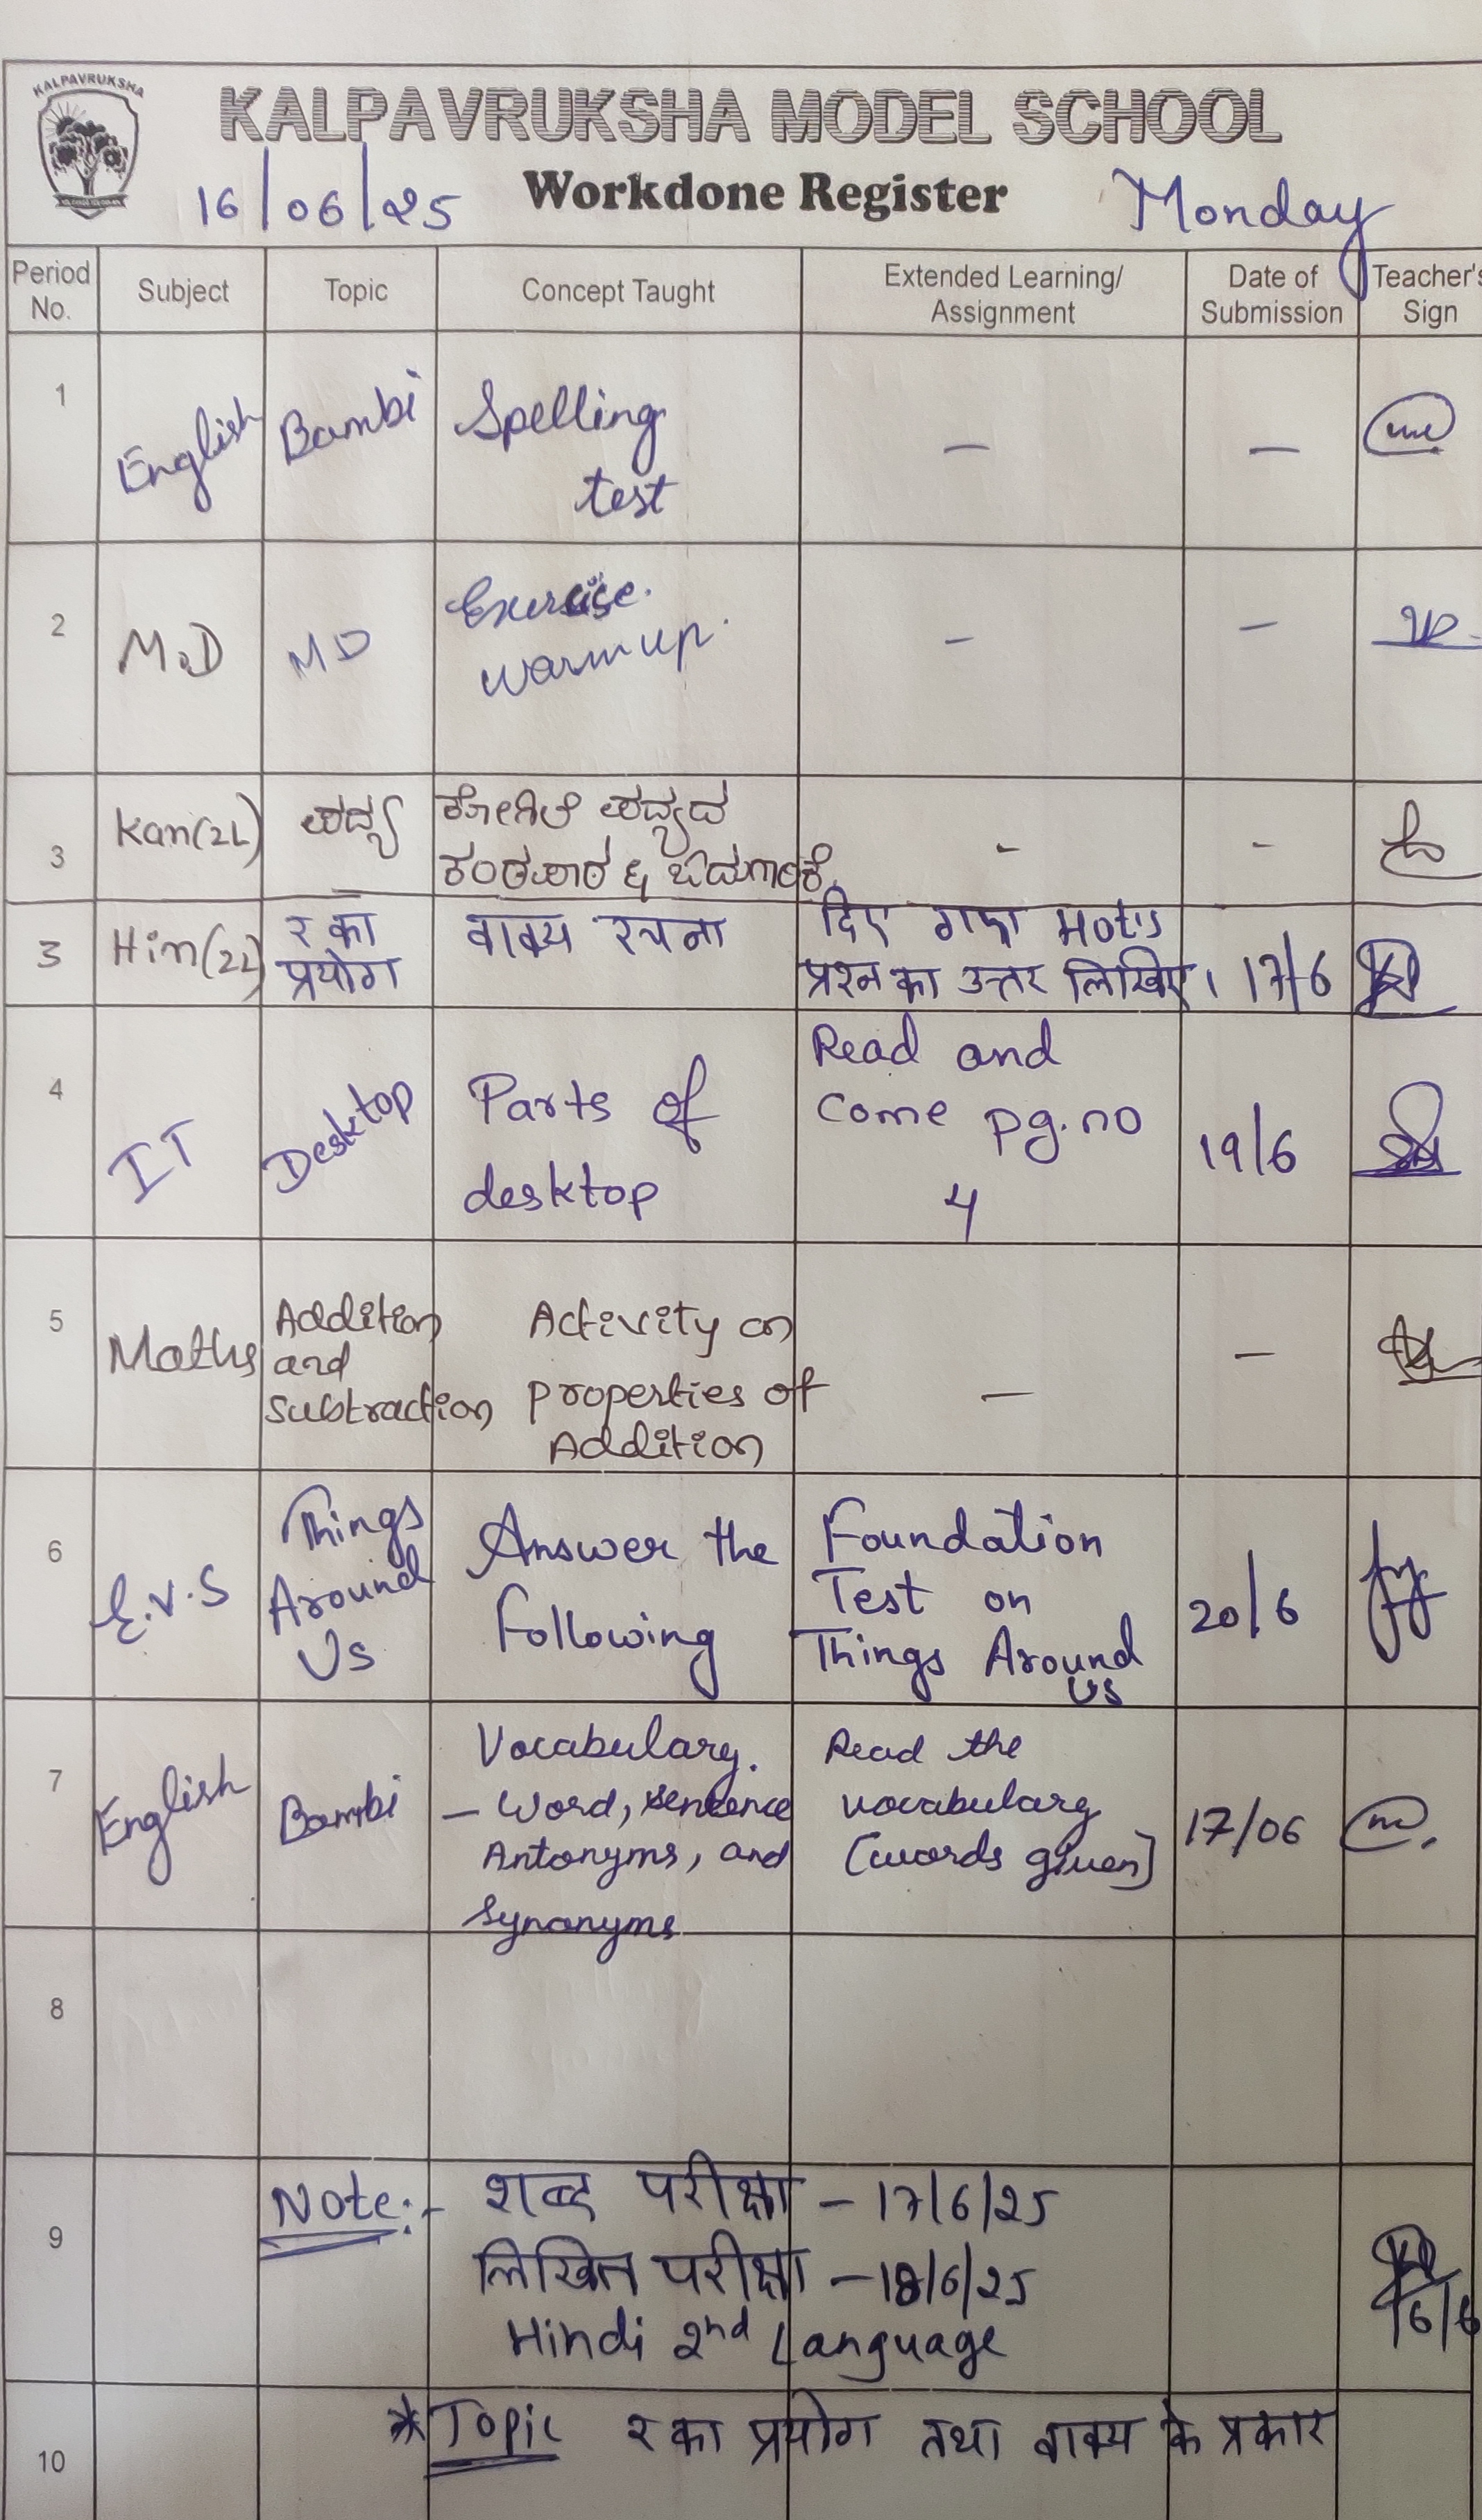 KALPAVRUKSHA
KALPAVRUKSHA MODEL SCHOOL
16/06/25 Workdone Register Monday
Period No. Subject Topic Concept Taught Extended Learning/ Assignment Date of Submission Teacher's Sign
1 English Bambi Spelling test — —
2 M.D MD Exercise. warm up. — —
3 Kan(2L) ಪದ್ಯ ಕೋಗಿಲೆ ಪದ್ಯದ
ಕಂಠಪಾಠ & - -
3 Hin(2L) र का प्रयोग वाक्य रचना दिए गए Hot's
प्रश्न का उत्तर लिखिए। 17/6
4 IT Desktop Parts of desktop Read and
come pg.no
4 19/6
5 Maths Addition and Subtraction Activity on
properties of
Addition — —
6 E.V.S Things Around Us Answer the
Following Foundation
Test on
Things Around
Us 20/6
7 English Bambi Vocabulary.
— Word, sentence
Antonyms, and
synonyms Read the
vocabulary
[words given] 17/06
8
9 Note:- शब्द परीक्षा – 17/6/25
लिखित परीक्षा – 18/6/25
Hindi 2nd Language
16/6
10 *Topic र का प्रयोग तथा वाक्य के प्रकार